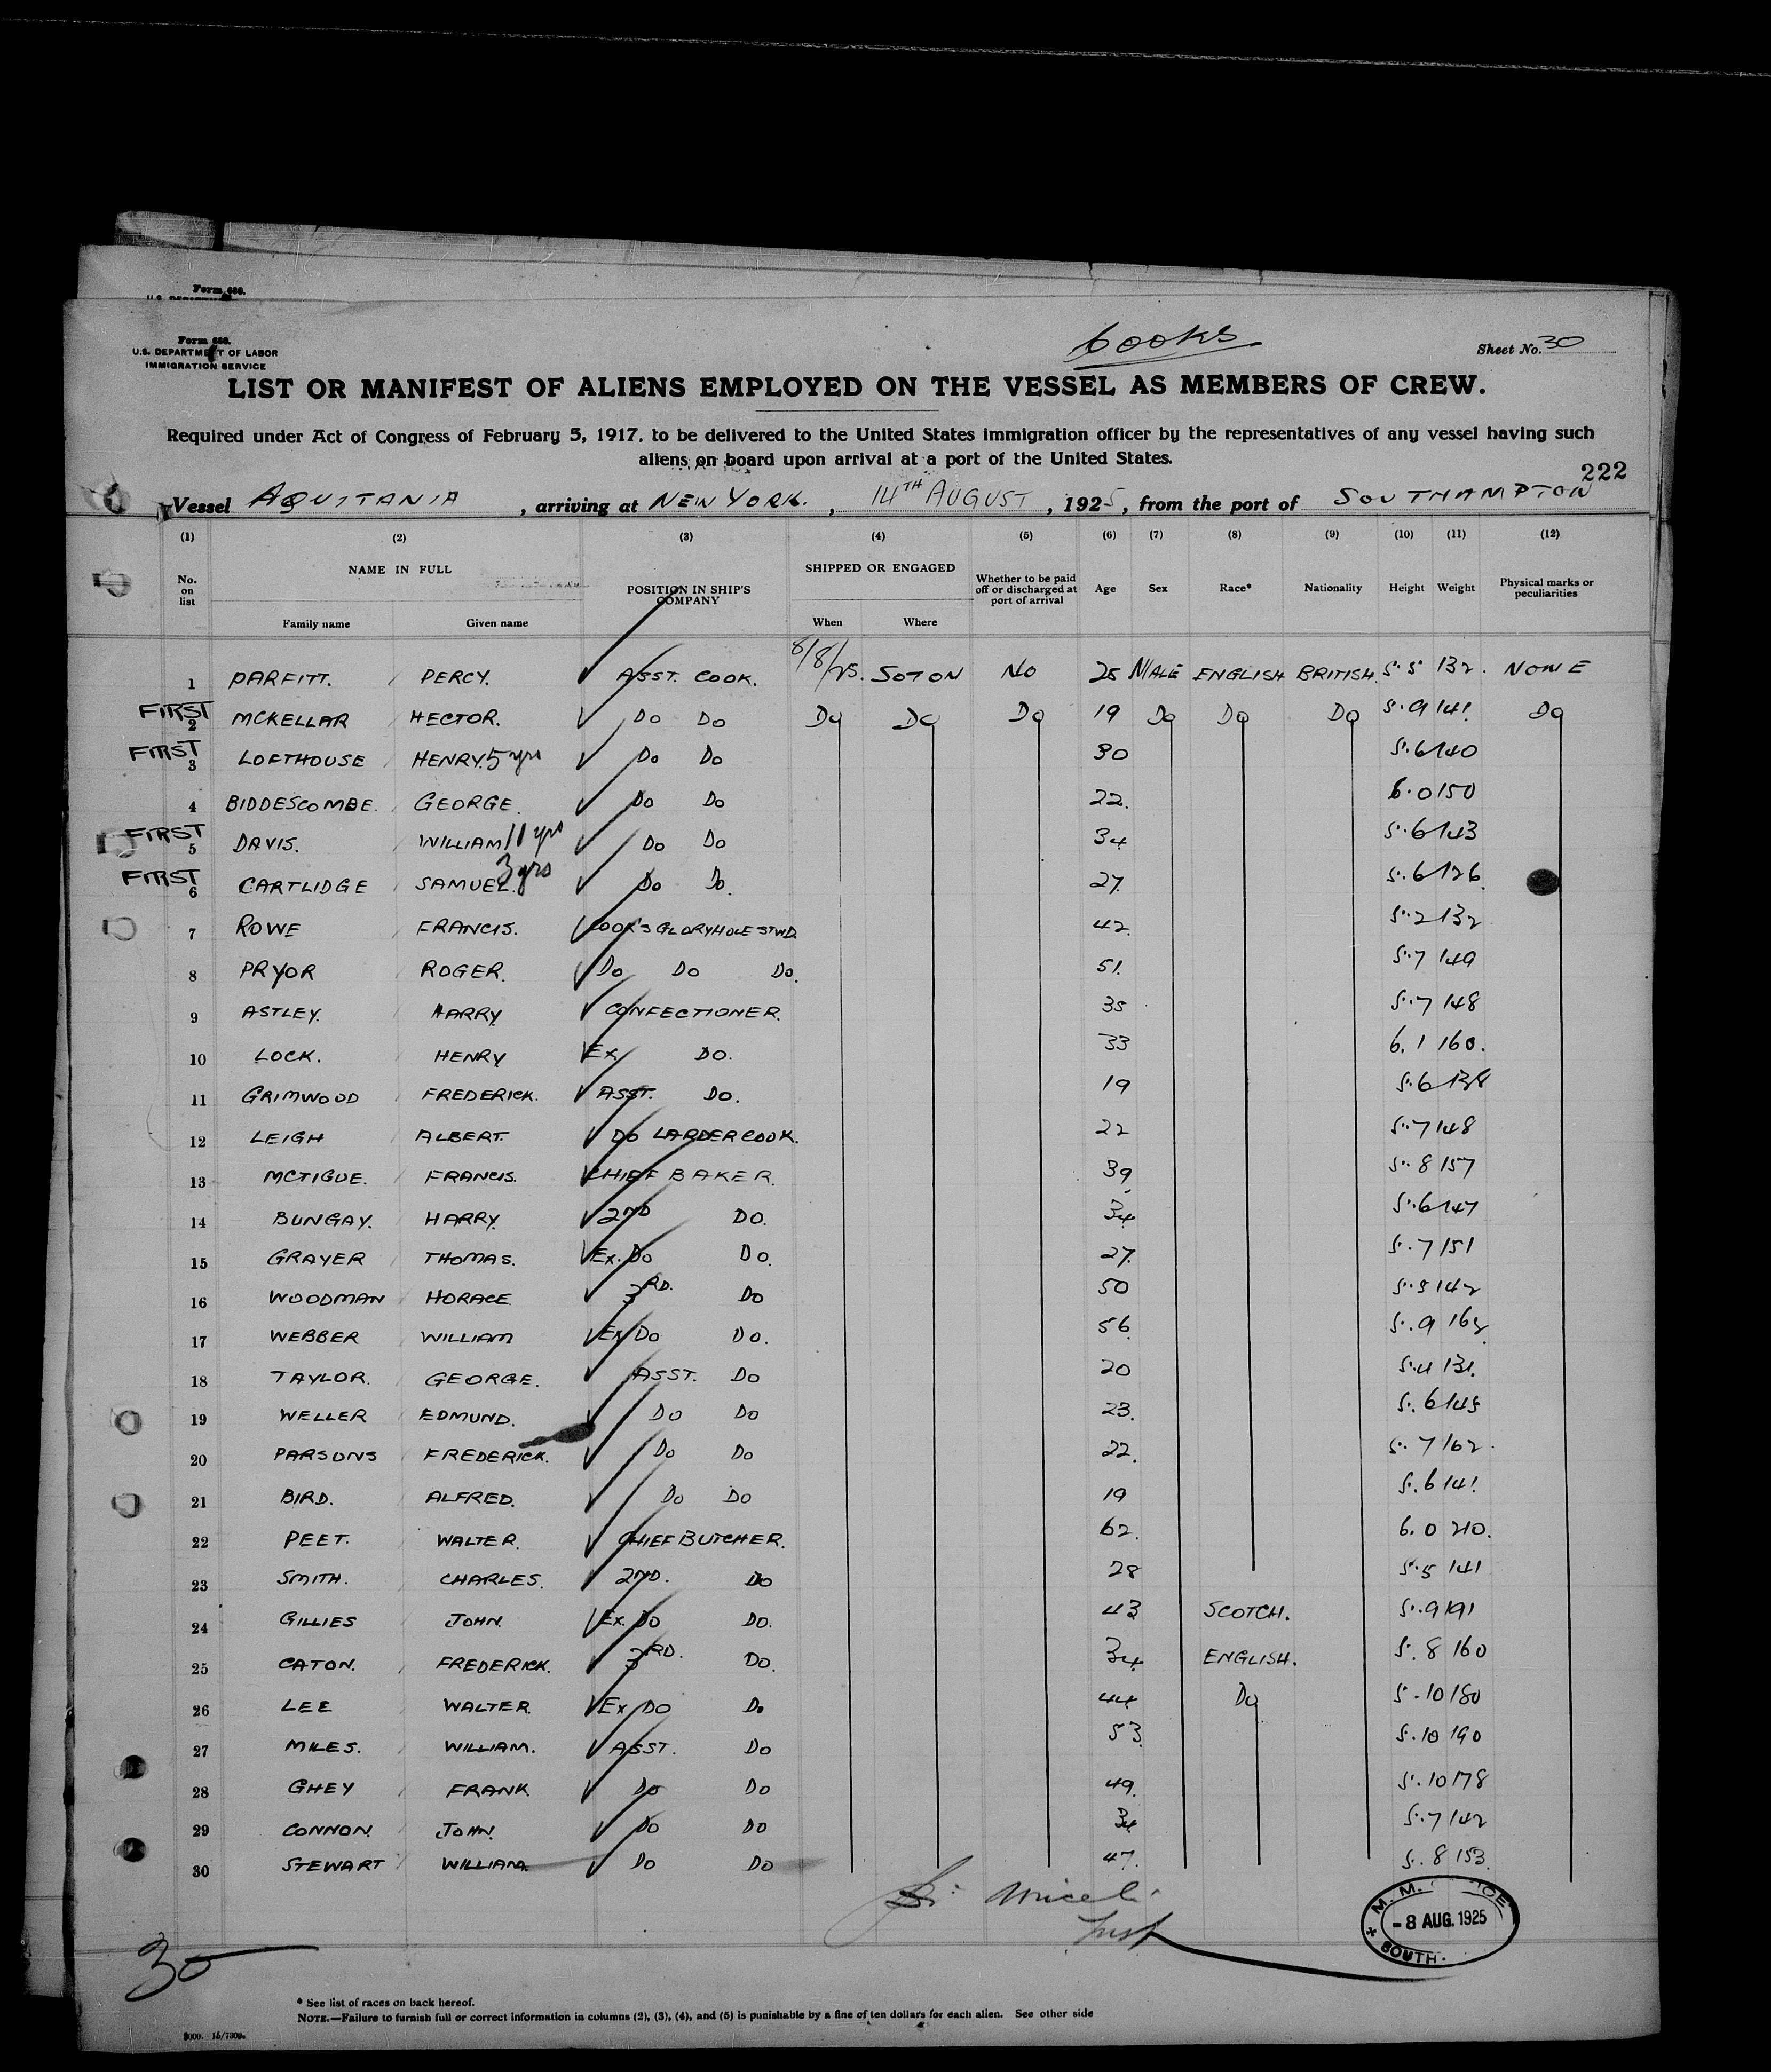 Form 680.
Form 680.
U.S. DEPARTMENT OF LABOR
IMMIGRATION SERVICE
Cooks
Sheet No. 30
LIST OR MANIFEST OF ALIENS EMPLOYED ON THE VESSEL AS MEMBERS OF CREW.
Required under Act of Congress of February 5, 1917, to be delivered to the United States immigration officer by the representatives of any vessel having such
aliens on board upon arrival at a port of the United States.
222
Vessel AQUITANIA, arriving at NEW YORK., 14TH AUGUST, 1925, from the port of SOUTHAMPTON
(1) (2) (3) (4) (5) (6) (7) (8) (9) (10) (11) (12)
No. on list NAME IN FULL Family name Given name POSITION IN SHIP'S COMPANY SHIPPED OR ENGAGED When Where Whether to be paid off or discharged at port of arrival Age Sex Race* Nationality Height Weight Physical marks or peculiarities
1 PARFITT. PERCY. ASST. COOK. 8/8/25. SOTON NO 25 MALE ENGLISH BRITISH. 5.5 132. NONE
FIRST 2 MCKELLAR HECTOR. DO DO DO DO DO 19 DO DO DO 5.9 141. DO
FIRST 3 LOFTHOUSE HENRY. 5 yrs DO DO 30 5.6 140
4 BIDDESCOMBE. GEORGE. DO DO 22. 6.0 150
FIRST 5 DAVIS. WILLIAM 11 yrs DO DO 34 5.6 143
FIRST 6 CARTLIDGE SAMUEL. 3 yrs DO DO. 27. 5.6 126.
7 ROWE FRANCIS. COOK'S GLORYHOLE STWD. 42. 5.2 132
8 PRYOR ROGER. DO DO DO. 51. 5.7 149
9 ASTLEY. HARRY CONFECTIONER. 35 5.7 148
10 LOCK. HENRY EX DO. 33 6.1 160.
11 GRIMWOOD FREDERICK. ASST. DO. 19 5.6 138
12 LEIGH ALBERT. DO LARDER COOK. 22 5.7 148
13 MCTIGUE. FRANCIS. CHIEF BAKER. 39 5.8 157
14 BUNGAY. HARRY. 2ND DO. 34 5.6 147
15 GRAYER THOMAS. EX. DO DO. 27. 5.7 151
16 WOODMAN HORACE. 3RD. DO 50 5.5 142
17 WEBBER WILLIAM EX DO DO. 56. 5.9 168.
18 TAYLOR. GEORGE. ASST. DO 20 5.4 131.
19 WELLER EDMUND. DO DO 23. 5.6 145
20 PARSONS FREDERICK. DO DO 22. 5.7 162.
21 BIRD. ALFRED. DO DO 19 5.6 141.
22 PEET. WALTER. CHIEF BUTCHER. 62. 6.0 210.
23 SMITH. CHARLES. 2ND. DO 28 5.5 141
24 GILLIES JOHN. EX. DO DO. 43 SCOTCH. 5.9 191
25 CATON. FREDERICK. 3RD. DO. 34. ENGLISH. 5.8 160
26 LEE WALTER EX DO DO 44 DO 5.10 180
27 MILES. WILLIAM. ASST. DO 53. 5.10 190
28 GHEY FRANK DO DO 49. 5.10 178
29 CONNON. JOHN. DO DO 34 5.7 142
30 STEWART WILLIAM. DO DO 47. 5.8 153.
M. M.
- 8 AUG. 1925
SOUTH.
30
* See list of races on back hereof.
NOTE.—Failure to furnish full or correct information in columns (2), (3), (4), and (5) is punishable by a fine of ten dollars for each alien. See other side
5000. 15/7309.